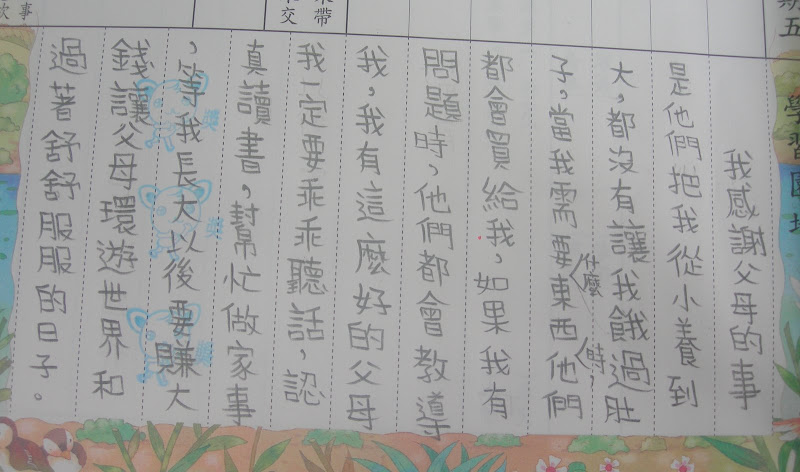 期五
學習園地
我感謝父母的事
是他們把我從小養到
大,都沒有讓我餓過肚
子,當我需要什麼東西時,他們
都會買給我,如果我有
問題時,他們都會教導
我,我有這麼好的父母
我一定要乖乖聽話,認
真讀書,幫忙做家事
,等我長大以後要賺大
錢讓父母環遊世界和
過著舒舒服服的日子。
獎
獎
獎
帶
交
事